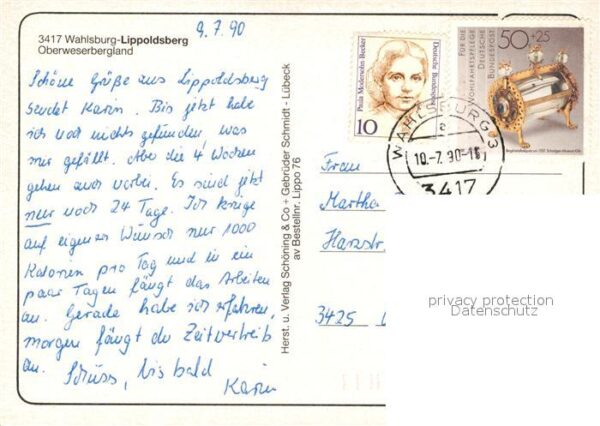 9.7.90
3417 Wahlsburg-Lippoldsberg
Oberweserbergland
Schöne Grüße aus Lippoldsberg
sendet Karin. Bis jetzt habe
ich noch nichts gefunden was
mir gefällt. Aber die 4 Wochen
gehen auch vorbei. Es sind jetzt
nur noch 24 Tage. Ich kriege
auf eigenen Wunsch nur 1000
Kalorien pro Tag und in ein
paar Tagen fängt das Arbeiten
an. Gerade habe ich erfahren,
morgen fängt die Zeitvertreib
an. Tschüss, bis bald
Karin
Herst. u. Verlag Schöning & Co + Gebrüder Schmidt - Lübeck
av Bestellnr. Lippo 76
Paula Modersohn-Becker
Deutsche Bundespost
10
FÜR DIE
WOHLFAHRTSPFLEGE
DEUTSCHE
BUNDESPOST
50+25
WAHLSBURG
10.-7.90-
3417
Frau
Martha
Harzstr.
3425
privacy protection
Datenschutz